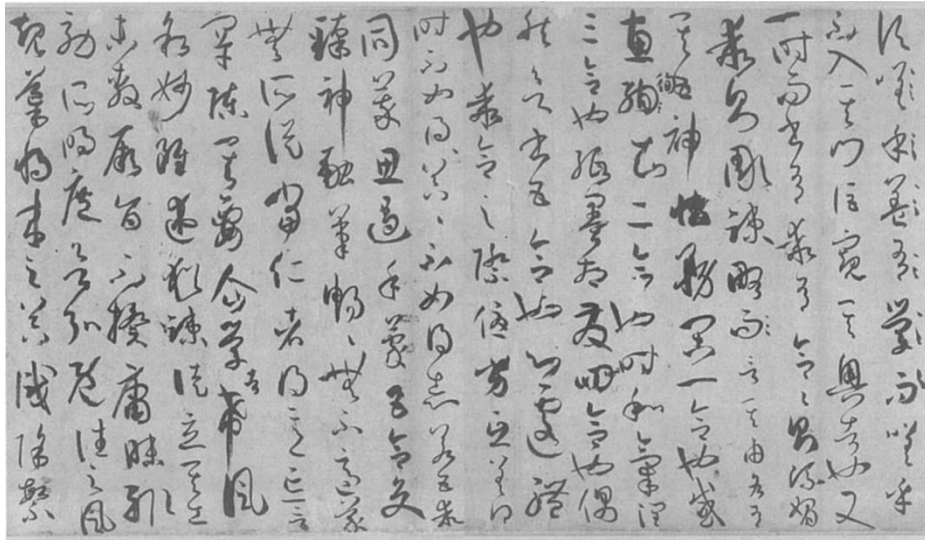 嗟乎
不入其門詎窺其奧者也又
一時而書有乖有合合則流媚
乖則彫疎略言其由各有
其五神怡務閑一合也感
惠徇知二合也時和氣潤
三合也紙墨相發四合也偶
然欲書五合也心遽體
也乖合之際優劣互差得
時不如得器得器不如得志若五乖
同萃思遏手蒙五合交
臻神融筆暢暢無不適蒙
無所從當仁者得意忘言
罕陳其要企學者希風
敘妙雖述猶疎徒立其工
未敷厥旨不揆庸昧輒
效所明庶欲弘既往之風
規導將來之器識除繁